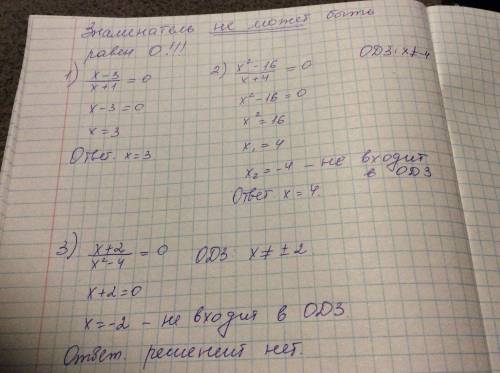 Знаменатель не может быть
равен 0!!!
1) x-3/x+1 = 0
x-3=0
x=3
Ответ. x=3
2) x²-16/x+4 = 0 ОДЗ: x≠-4
x²-16=0
x²=16
x₁=4
x₂=-4 - не входит
в ОДЗ
Ответ x=4.
3) x+2/x²-4 = 0 ОДЗ x≠±2
x+2=0
x=-2 - не входит в ОДЗ
Ответ. решений нет.